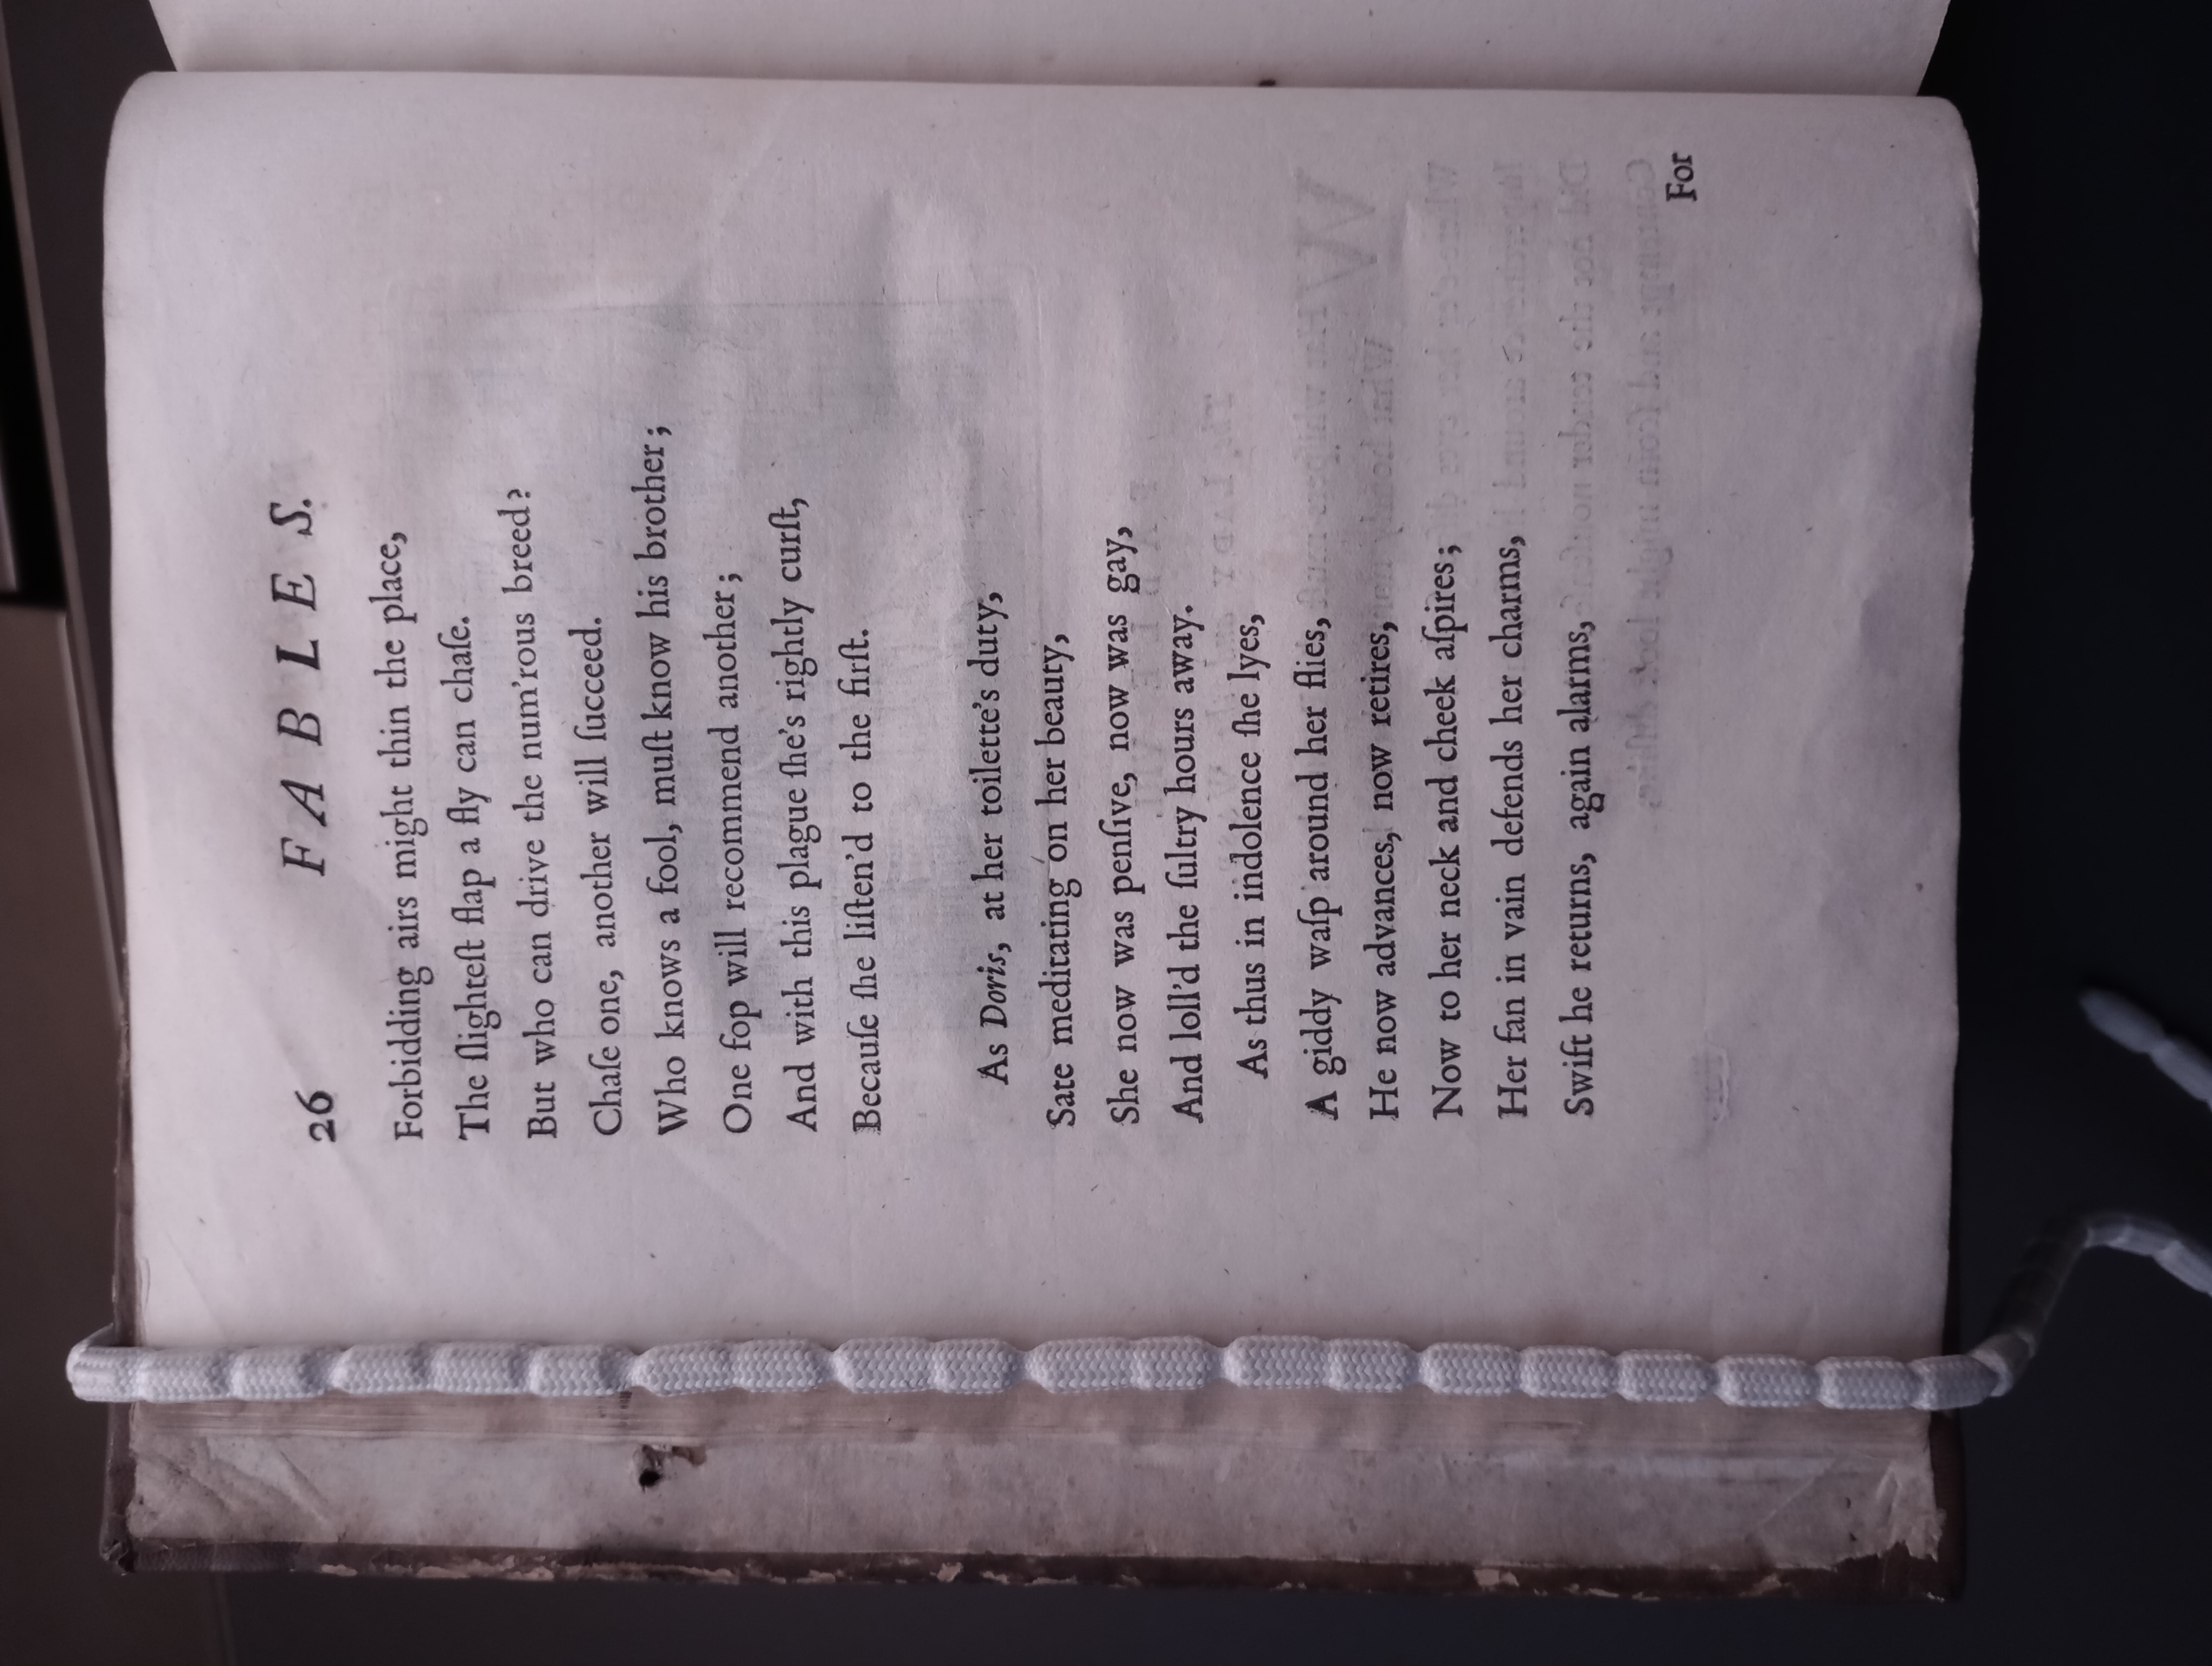 26 FABLES.
Forbidding airs might thin the place,
The ſlighteſt flap a fly can chaſe.
But who can drive the num'rous breed?
Chaſe one, another will ſucceed.
Who knows a fool, muſt know his brother;
One fop will recommend another;
And with this plague ſhe's rightly curſt,
Becauſe ſhe liſten'd to the firſt.
As Doris, at her toilette's duty,
Sate meditating on her beauty,
She now was penſive, now was gay,
And loll'd the ſultry hours away.
As thus in indolence ſhe lyes,
A giddy waſp around her flies,
He now advances, now retires,
Now to her neck and cheek aſpires;
Her fan in vain defends her charms,
Swift he returns, again alarms,
For